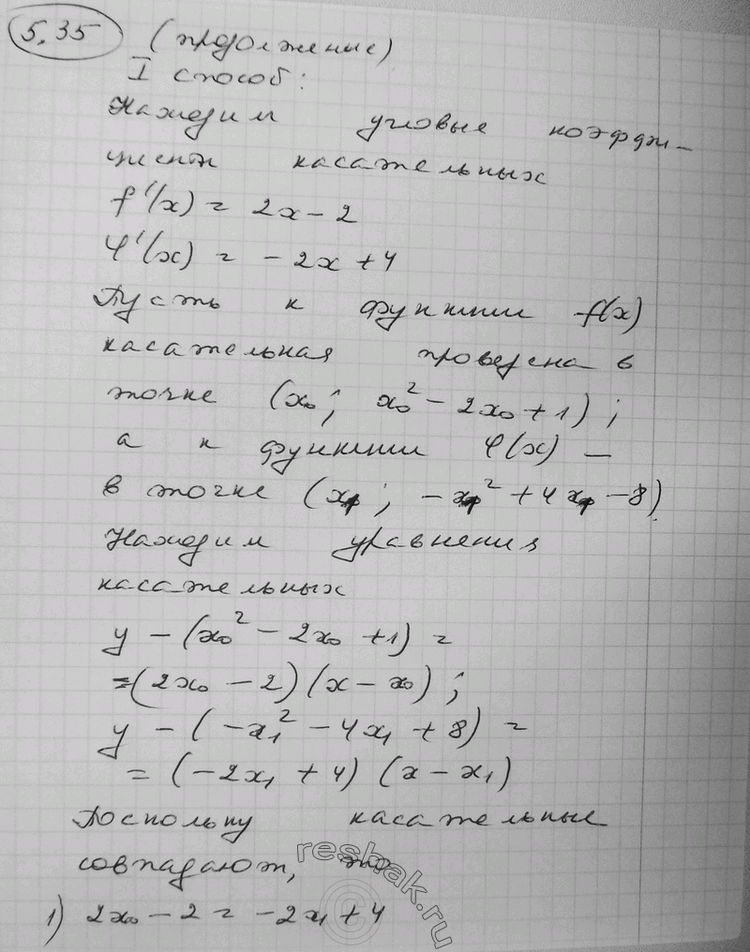 5.35 (продолжение)
I способ:
Находим угловые коэффи-
циенты касательных
f'(x) = 2x - 2
φ'(x) = - 2x + 4
Пусть к функции f(x)
касательная проведена в
точке (x₀; x₀² - 2x₀ + 1);
а к функции φ(x) —
в точке (x₁; -x₁² + 4x₁ - 8).
Находим уравнения
касательных
y - (x₀² - 2x₀ + 1) =
=(2x₀ - 2)(x - x₀);
y - (-x₁² - 4x₁ + 8) =
= (-2x₁ + 4)(x - x₁)
Поскольку касательные
совпадают, то
1) 2x₀ - 2 = -2x₁ + 4
reshak.ru